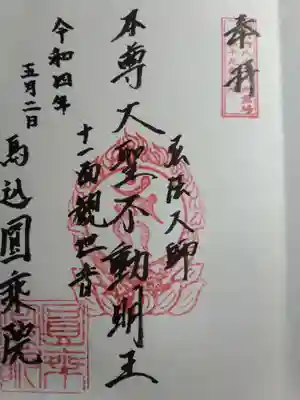 奉拝
弘法大師
本尊 大聖不動明王
十一面観世音
令和四年
五月二日
馬込 圓乗院